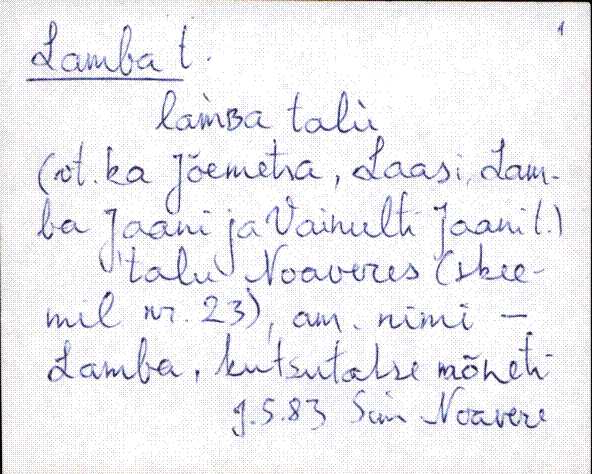 1
Lamba t.
lamba talu
(vt. ka Jõemetsa, Laasi, Lam-
ba Jaani ja Vainulti Jaani t.)
talu Noaveres (skee-
mil nr. 23), am. nimi –
Lamba, kutsutakse mõneti
J.S. 83 Sim Noavere